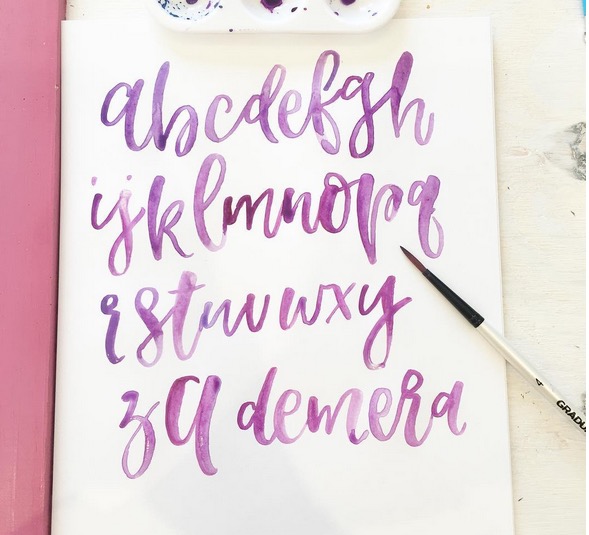 abcdefgh
ijklmnopq
rstuvwxy
za demera
4 GRADU